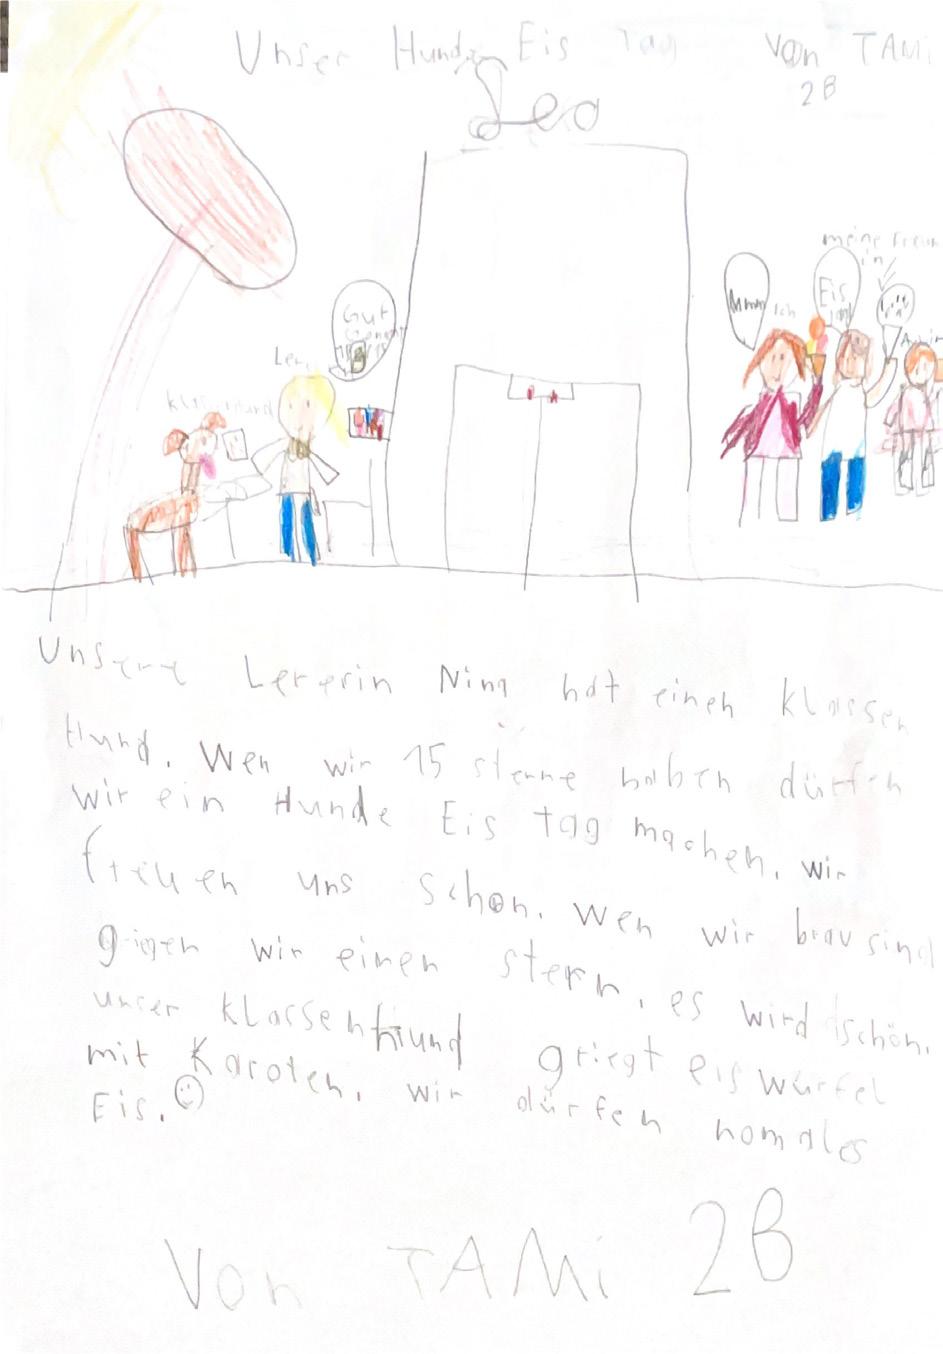 Unser Hunde Eis Tag Von TAMi
2B
Leo
meine Freun
in
Mmm
Ich
Eis
Gut
Ler
Klassenhund
Unserre Lererin Nina hat einen Klassen
Hund. Wen wir 15 sterne haben dürfen
wir ein Hunde Eis tag machen. wir
freuen uns schon. wen wir brav sind
griegen wir einen stern. es wird schön.
unser Klassenhund griegt eis würfel
mit Karoten. wir dürfen nomales
Eis.
Von TAMi 2B